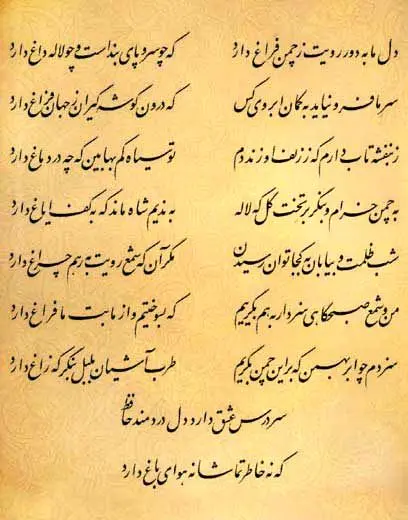 دل ما به دور رویت ز چمن فراغ دارد که چو سرو پای بند است و چو لاله داغ دارد
سر ما فرو نیاید به کمان ابروی کس که درون گوشه گیران ز جهان فراغ دارد
ز بنفشه تاب دارم که ز زلف او زند دم تو سیاه کم بها بین که چه در دماغ دارد
به چمن خرام و بنگر بر تخت گل که لاله به ندیم شاه ماند که به کف ایاغ دارد
شب ظلمت و بیابان به کجا توان رسیدن مگر آن که شمع رویت به رهم چراغ دارد
من و شمع صبحگاهی سزد ار به هم بگرییم که بسوختیم و از ما بت ما فراغ دارد
سزدم چو ابر بهمن که بر این چمن بگریم طرب آشیان بلبل بنگر که زاغ دارد
سر درس عشق دارد دل دردمند حافظ
که نه خاطر تماشا نه هوای باغ دارد